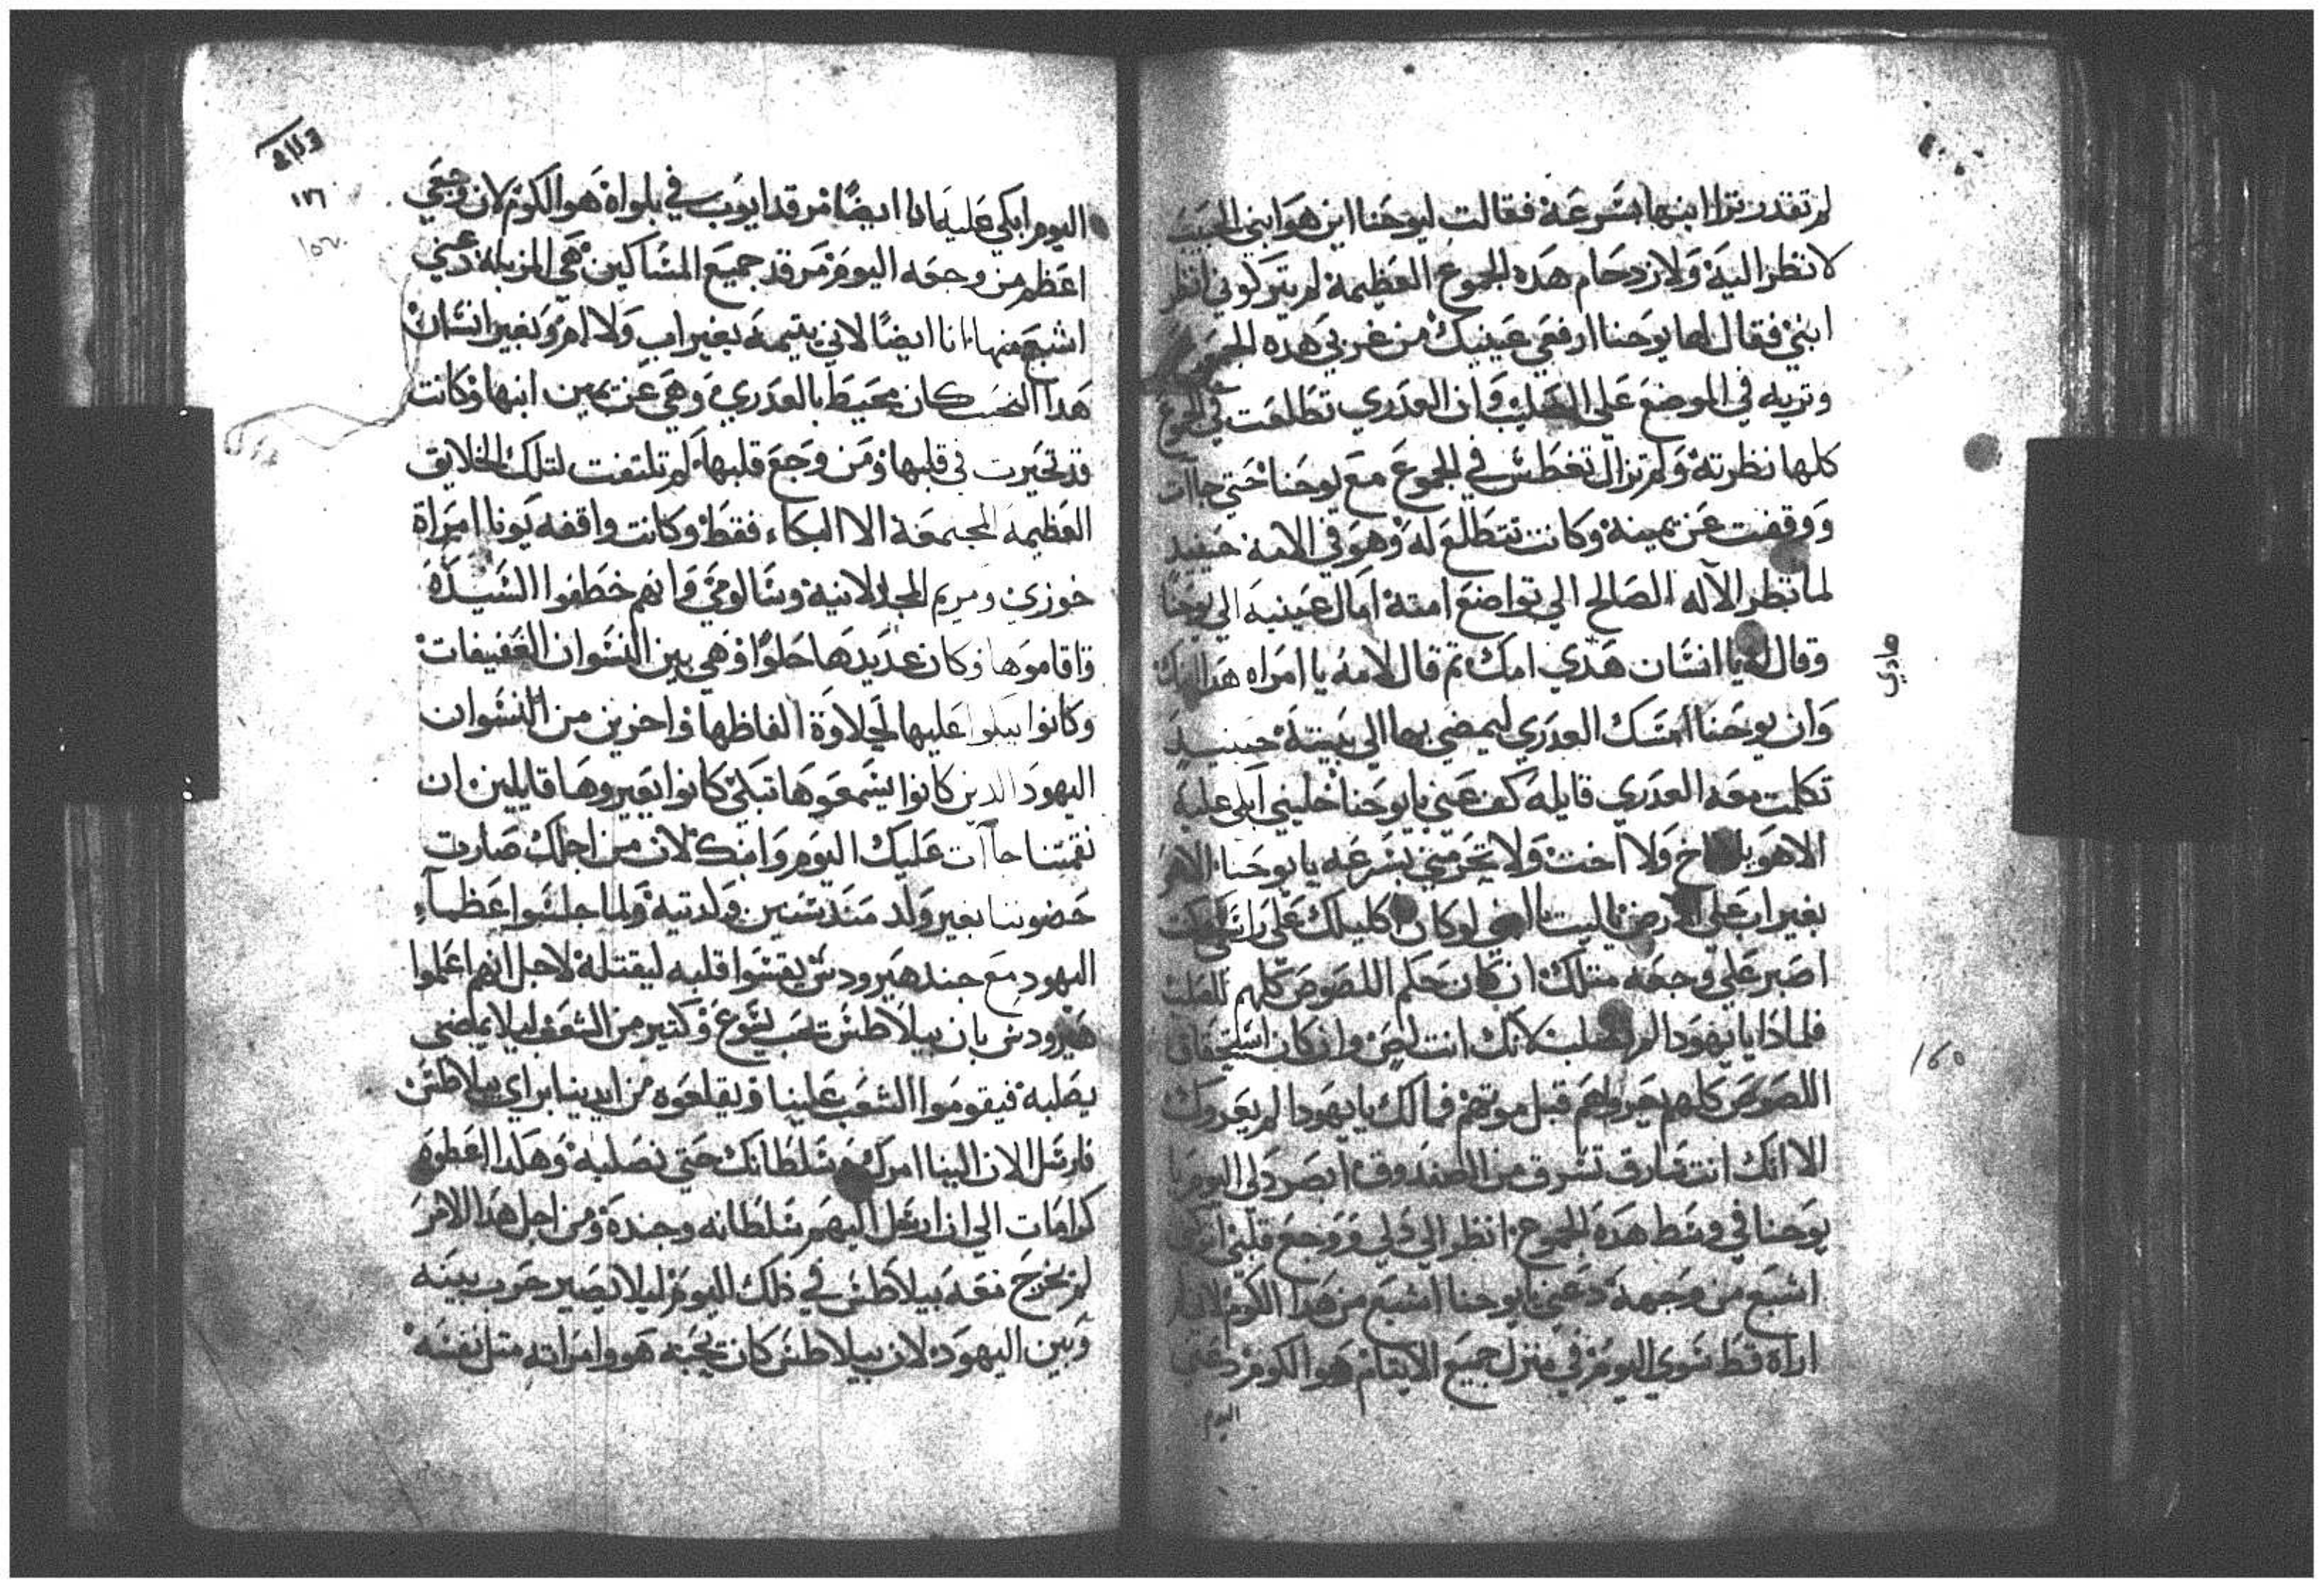 لم تقدر ترا ابنها بسرعة فقالت ليوحنا اين هو ابني الحبيب
لانظر اليه ولازدحام هده الجموع العظيمة لم يتركوني انظر
ابني فقال لها يوحنا ارفعي عينيك من غربي هده الجموع
وتريه في الموضع على الصليب وان العدري تطلعت في الجموع
كلها نظرته ولم تزال تغطس في الجموع مع يوحنا حتي جاات
ووقفت عن يمينه وكانت تتطلع له وهو في الامه حينيد
لما نظر الآله الصالح الي تواضع امته امال عينيه الي يوحنا
وقال له يا انسان هدي امك تم قال لامه يا امراه هدا ابنك
وان يوحنا امسك العدري ليمضي بها الي بيته حينيد
تكلمت معه العدري قايله كف عني يا يوحنا خليني ابكي عليه
الا هو بلا اخ ولا اخت ولا تحرمني بسرعه يا يوحنا
بغير اب على الارض ياليت يا ابني لوكان اكليلك على راسي وكنت
اصبر على وجعه متلك ان كان حكم اللصوص كلهم الصلب
فلماذا يا يهودا لم تصلب لانك انت لص وان كان
اللصوص كلهم قبل موتهم فمالك يا يهودا لم
الا انك انت سارق تسرق من الصندوق ابصر دلي اليوم يا
يوحنا في وسط هده الجموع انظر الي دلي ووجع قلبي
اشبع من وجهه دعني يا يوحنا اشبع من هدا الكوم
اراه قط سوي اليوم في منزل جميع الايتام هو الكوم دعني
اليوم
هادي
١٤٥
اليوم ابكي عليه انا ايضا مرقد ايوب في بلواه هو الكوم لان وجعي
اعظم من وجعه اليوم مرقد جميع المساكين هي المزبله دعني
اشبع منها انا ايضا لاني يتيمه بغير اب ولا ام وبغير انسان
هدا النحيب كان محيط بالعدري وهي عن يمين ابنها وكانت
قد تحيرت في قلبها ومن وجع قلبها لم تلتفت لتلك الخلايق
العظيمه المجتمعة الا البكاء فقط وكانت واقفه يونا امراة
خوزي ومريم المجدلانية وسالومي وانهم خطفوا السيدة
واقاموها وكان عديدها حلوا وهي بين النسوان العفيفات
وكانوا يبكوا عليها لحلاوة الفاظها واخرين من النسوان
اليهود الدين كانوا يسمعوها تبكي كانوا يعيروها قايلين ان
نقمتنا جاآت عليك اليوم وابنك لان من اجلك صارت
حضوننا بغير ولد مند سنين ولدتيه ولما جلسوا عظماء
اليهود مع جند هيرودس يقسوا قلبه ليقتله لاجل انهم اعلموا
هيرودس بان بيلاطس تحب يسوع وكتير من الشعب ليلا يمضي
يصلبه فيقوموا الشعب علينا ويقلعوه من ايدينا براي بيلاطس
فارسل الان الينا امرك وسلطانك حتي نصلبه وهكدا اعطوه
كرامات الي ان ارسل اليهم سلطانه وجنده ومن اجل هدا الامر
لم يخرج معه بيلاطس في ذلك اليوم ليلا يصير حرب بينه
وبين اليهود لان بيلاطس كان يحبه هو وامراته متل نفسه
١٢٦